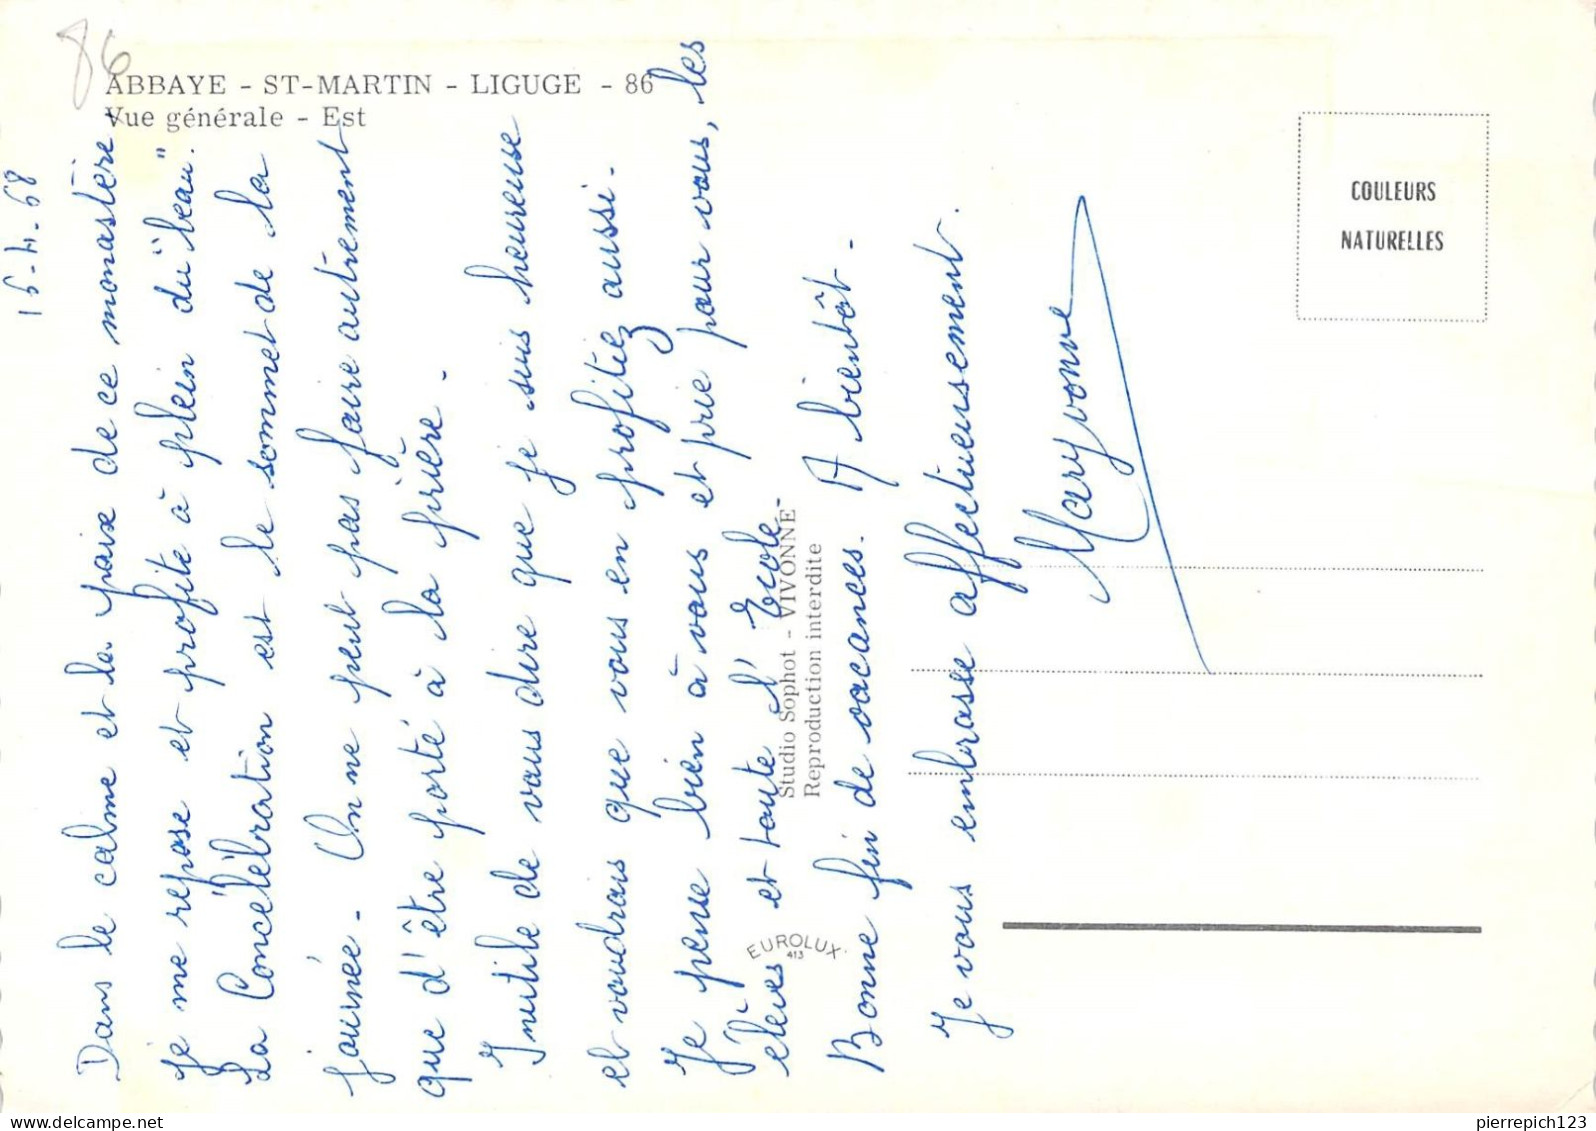 86
ABBAYE - ST-MARTIN - LIGUGE - 86
Vue générale - Est
COULEURS
NATURELLES
Studio Sophot - VIVONNE
Reproduction interdite
EUROLUX
413
16-4-68
Dans le calme et la paix de ce monastère
je me repose et profite à plein du "beau".
La Concélébration est le sommet de la
journée - On ne peut pas faire autrement
que d'être porté à la prière -
Inutile de vous dire que je suis heureuse
et voudrais que vous en profitiez aussi -
Je pense bien à vous et prie pour vous, les
élèves et toute l'Ecole -
Bonne fin de vacances. A bientôt -
Je vous embrasse affectueusement.
Maryvonne
pierrepich123